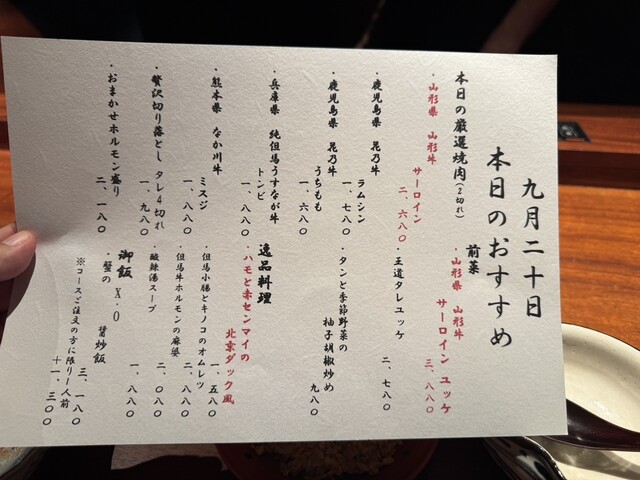 九月二十日
本日のおすすめ
本日の厳選焼肉(2切れ)
・山形県 山形牛
サーロイン
二、六八〇
・鹿児島県 花乃牛
ラムシン
一、七八〇
・鹿児島県 花乃牛
うちもも
一、六八〇
・兵庫県 純但馬うすなが牛
トンビ
一、八八〇
・熊本県 なか川牛
ミスジ
一、八八〇
・贅沢切り落とし タレ4切れ
一、九八〇
・おまかせホルモン盛り
二、一八〇
前菜
・山形県 山形牛
サーロイン ユッケ
三、八八〇
・王道タレユッケ
二、七八〇
・タンと季節野菜の
柚子胡椒炒め
九八〇
逸品料理
・ハモと赤センマイの
北京ダック風
・但馬小腸とキノコのオムレツ
一、五八〇
・但馬牛ホルモンの麻婆
二、八八〇
・酸辣湯スープ
二、〇八〇
御飯
・蟹の X.O 醤炒飯
一、八八〇
三、一八〇
※コースご注文の方に限り1人前
+一、三〇〇